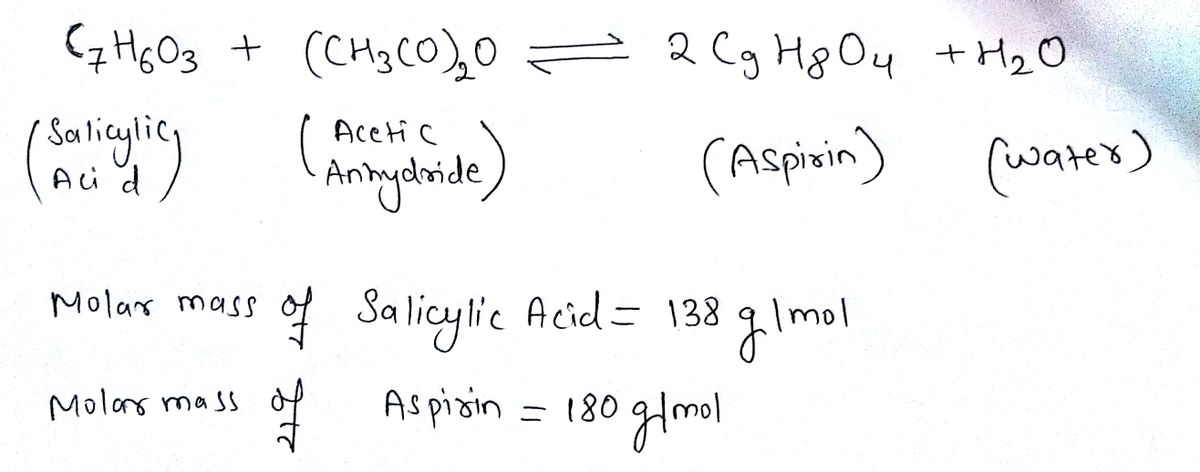 C7H6O3 + (CH3CO)2O ⇌ 2 C9H8O4 + H2O
(Salicylic Acid) (Acetic Anhydride) (Aspirin) (water)
Molar mass of Salicylic Acid = 138 g/mol
Molar mass of Aspirin = 180 g/mol